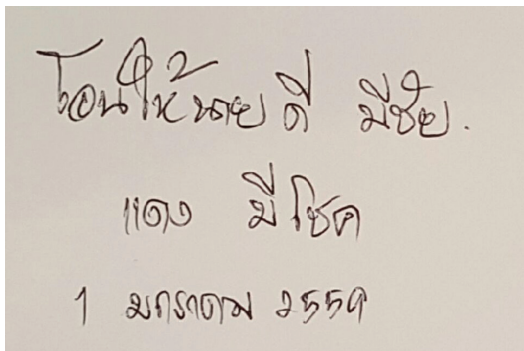 โอนให้นายดี มีชัย.
แดง มีโชค
1 มกราคม 2559